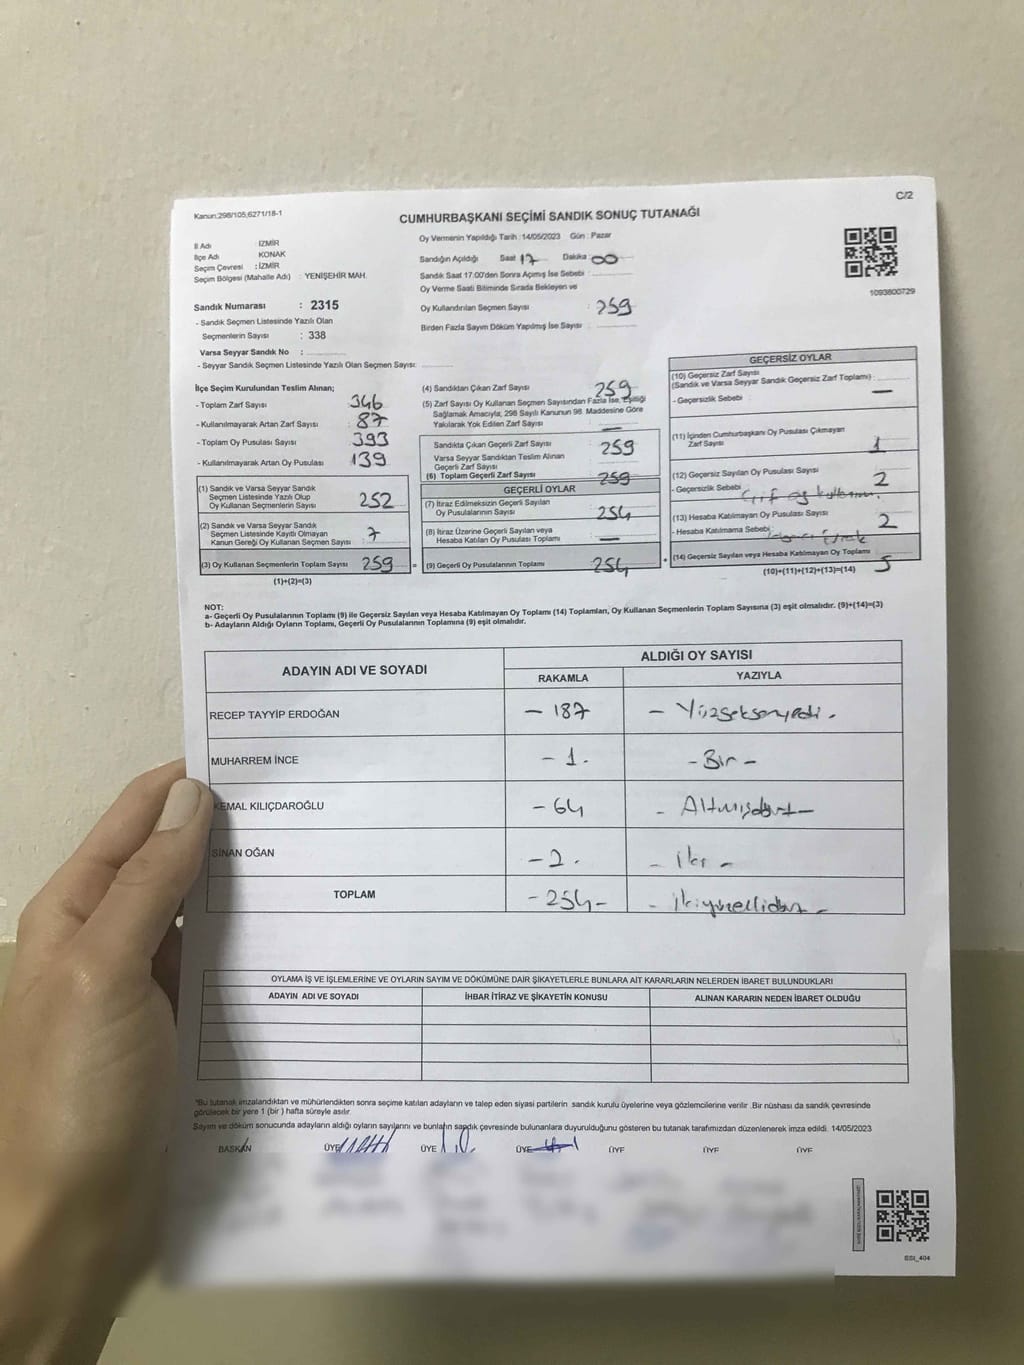 C/2
Kanun:298/105,6271/18-1
CUMHURBAŞKANI SEÇİMİ SANDIK SONUÇ TUTANAĞI
İl Adı : İZMİR
İlçe Adı : KONAK
Seçim Çevresi : İZMİR
Seçim Bölgesi (Mahalle Adı) : YENİŞEHİR MAH.
Sandık Numarası : 2315
- Sandık Seçmen Listesinde Yazılı Olan
Seçmenlerin Sayısı : 338
Varsa Seyyar Sandık No :
- Seyyar Sandık Seçmen Listesinde Yazılı Olan Seçmen Sayısı:
Oy Vermenin Yapıldığı Tarih :14/05/2023 Gün : Pazar
Sandığın Açıldığı Saat 17 Dakika 00
Sandık Saat 17:00'den Sonra Açımış İse Sebebi :
Oy Verme Saati Bitiminde Sırada Bekleyen ve
Oy Kullandırılan Seçmen Sayısı : 259
Birden Fazla Sayım Döküm Yapılmış İse Sayısı :
1093800729
İlçe Seçim Kurulundan Teslim Alınan;
- Toplam Zarf Sayısı : 346
- Kullanılmayarak Artan Zarf Sayısı : 87
- Toplam Oy Pusulası Sayısı : 393
- Kullanılmayarak Artan Oy Pusulası : 139
(1) Sandık ve Varsa Seyyar Sandık
Seçmen Listesinde Yazılı Olup
Oy Kullanan Seçmenlerin Sayısı 252
(2) Sandık ve Varsa Seyyar Sandık
Seçmen Listesinde Kayıtlı Olmayan
Kanun Gereği Oy Kullanan Seçmen Sayısı 7
(3) Oy Kullanan Seçmenlerin Toplam Sayısı 259
(1)+(2)=(3)
(4) Sandıktan Çıkan Zarf Sayısı : 259
(5) Zarf Sayısı Oy Kullanan Seçmen Sayısından Fazla İse, Eşitliği
Sağlamak Amacıyla, 298 Sayılı Kanunun 98. Maddesine Göre
Yakılarak Yok Edilen Zarf Sayısı : —
Sandıkta Çıkan Geçerli Zarf Sayısı : 259
Varsa Seyyar Sandıktan Teslim Alınan
Geçerli Zarf Sayısı :
(6) Toplam Geçerli Zarf Sayısı : 259
GEÇERLİ OYLAR
(7) İtiraz Edilmeksizin Geçerli Sayılan
Oy Pusulalarının Sayısı : 254
(8) İtiraz Üzerine Geçerli Sayılan veya
Hesaba Katılan Oy Pusulası Toplamı : —
= (9) Geçerli Oy Pusulalarının Toplamı : 254 +
GEÇERSİZ OYLAR
(10) Geçersiz Zarf Sayısı
(Sandık ve Varsa Seyyar Sandık Geçersiz Zarf Toplamı) :
- Geçersizlik Sebebi : —
(11) İçinden Cumhurbaşkanı Oy Pusulası Çıkmayan
Zarf Sayısı 1
(12) Geçersiz Sayılan Oy Pusulası Sayısı 2
- Geçersizlik Sebebi Çift oy kullanımı.
(13) Hesaba Katılmayan Oy Pusulası Sayısı 2
- Hesaba Katılmama Sebebi :
(14) Geçersiz Sayılan veya Hesaba Katılmayan Oy Toplamı 5
(10)+(11)+(12)+(13)=(14)
NOT:
a- Geçerli Oy Pusulalarının Toplamı (9) ile Geçersiz Sayılan veya Hesaba Katılmayan Oy Toplamı (14) Toplamları, Oy Kullanan Seçmenlerin Toplam Sayısına (3) eşit olmalıdır. (9)+(14)=(3)
b- Adayların Aldığı Oyların Toplamı, Geçerli Oy Pusulalarının Toplamına (9) eşit olmalıdır.
ADAYIN ADI VE SOYADI
ALDIĞI OY SAYISI
RAKAMLA YAZIYLA
RECEP TAYYİP ERDOĞAN – 187 – Yüzseksenyedi .
MUHARREM İNCE – 1. – Bir –
KEMAL KILIÇDAROĞLU – 64 – Altmışdört –
SİNAN OĞAN – 2. – iki –
TOPLAM – 254 – – ikiyüzellidört –
OYLAMA İŞ VE İŞLEMLERİNE VE OYLARIN SAYIM VE DÖKÜMÜNE DAİR ŞİKAYETLERLE BUNLARA AİT KARARLARIN NELERDEN İBARET BULUNDUKLARI
ADAYIN ADI VE SOYADI İHBAR İTİRAZ VE ŞİKAYETİN KONUSU ALINAN KARARIN NEDEN İBARET OLDUĞU
*Bu tutanak imzalandıktan ve mühürlendikten sonra seçime katılan adayların ve talep eden siyasi partilerin sandık kurulu üyelerine veya gözlemcilerine verilir .Bir nüshası da sandık çevresinde
görülecek bir yere 1 (bir ) hafta süreyle asılır.
Sayım ve döküm sonucunda adayların aldığı oyların sayılarını ve bunların sandık çevresinde bulunanlara duyurulduğunu gösteren bu tutanak tarafımızdan düzenlenerek imza edildi. 14/05/2023
BAŞKAN ÜYE ÜYE ÜYE ÜYE ÜYE ÜYE
SSI_404